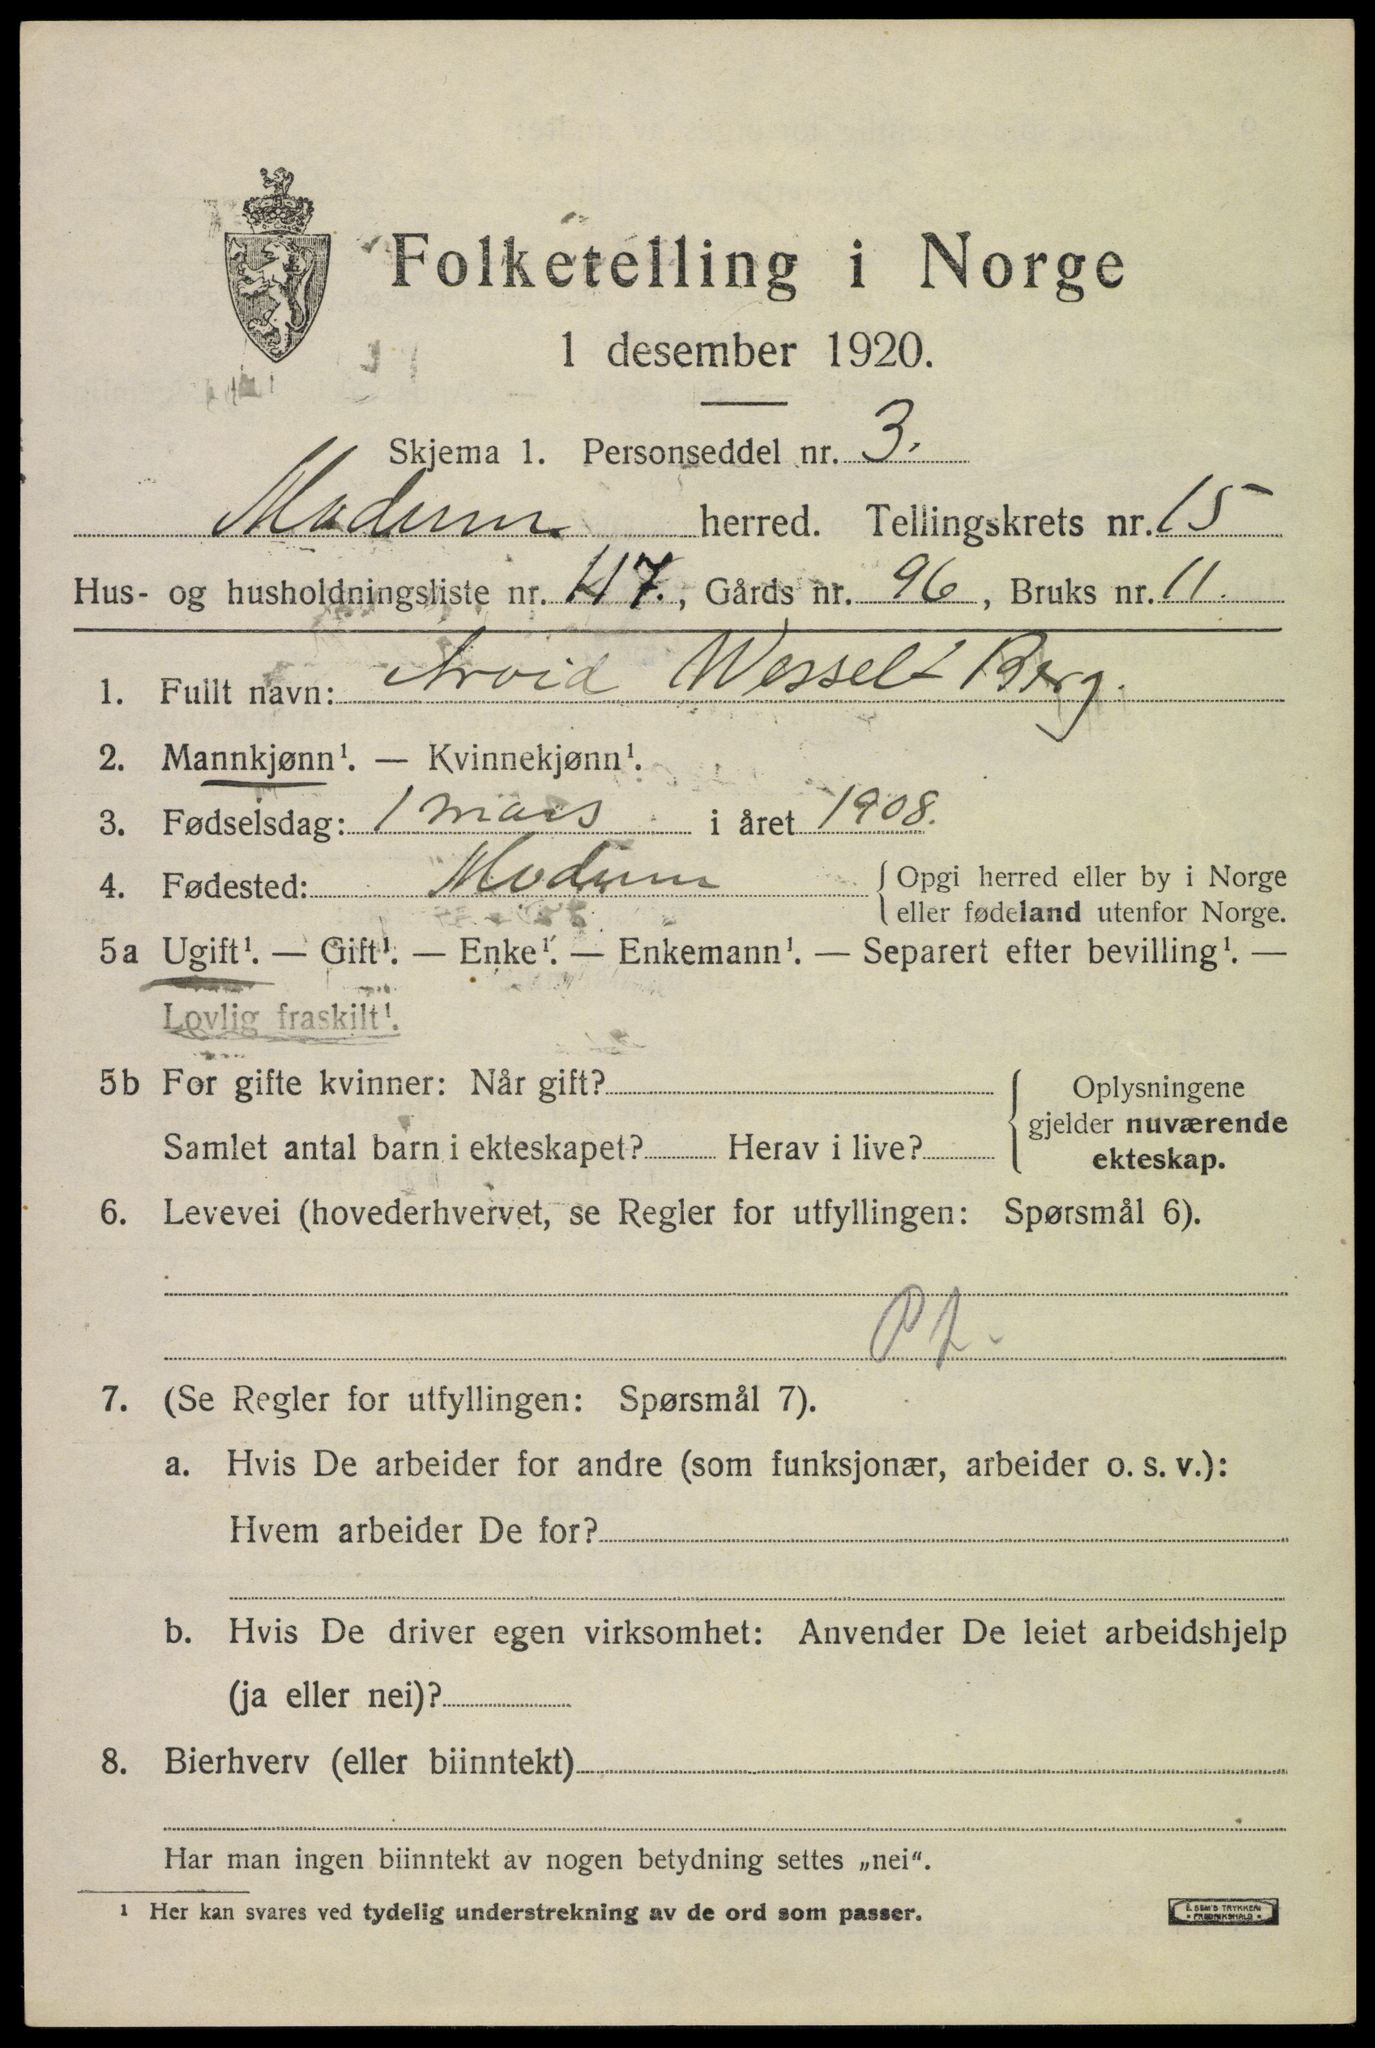 Folketelling i Norge
1 desember 1920.
Skjema 1. Personseddel nr. 3.
Modum herred. Tellingskrets nr. 15
Hus- og husholdningsliste nr. 117., Gårds nr. 96, Bruks nr. 11.
1. Fullt navn: Arvid Wessel Berg.
2. Mannkjønn¹. — Kvinnekjønn¹.
3. Fødselsdag: 1 mars i året 1908.
4. Fødested: Modum { Opgi herred eller by i Norge
eller fødeland utenfor Norge.
5a Ugift¹. — Gift¹. — Enke¹. — Enkemann¹. — Separert efter bevilling¹. —
Lovlig fraskilt¹.
5b For gifte kvinner: Når gift?
Samlet antal barn i ekteskapet? Herav i live?
Oplysningene
gjelder nuværende
ekteskap.
6. Levevei (hovederhvervet, se Regler for utfyllingen: Spørsmål 6).
7. (Se Regler for utfyllingen: Spørsmål 7).
a. Hvis De arbeider for andre (som funksjonær, arbeider o. s. v.):
Hvem arbeider De for?
b. Hvis De driver egen virksomhet: Anvender De leiet arbeidshjelp
(ja eller nei)?
8. Bierhverv (eller biinntekt)
Har man ingen biinntekt av nogen betydning settes „nei“.
¹ Her kan svares ved tydelig understrekning av de ord som passer.
E. SEM'S TRYKKERI
FREDRIKSHALD